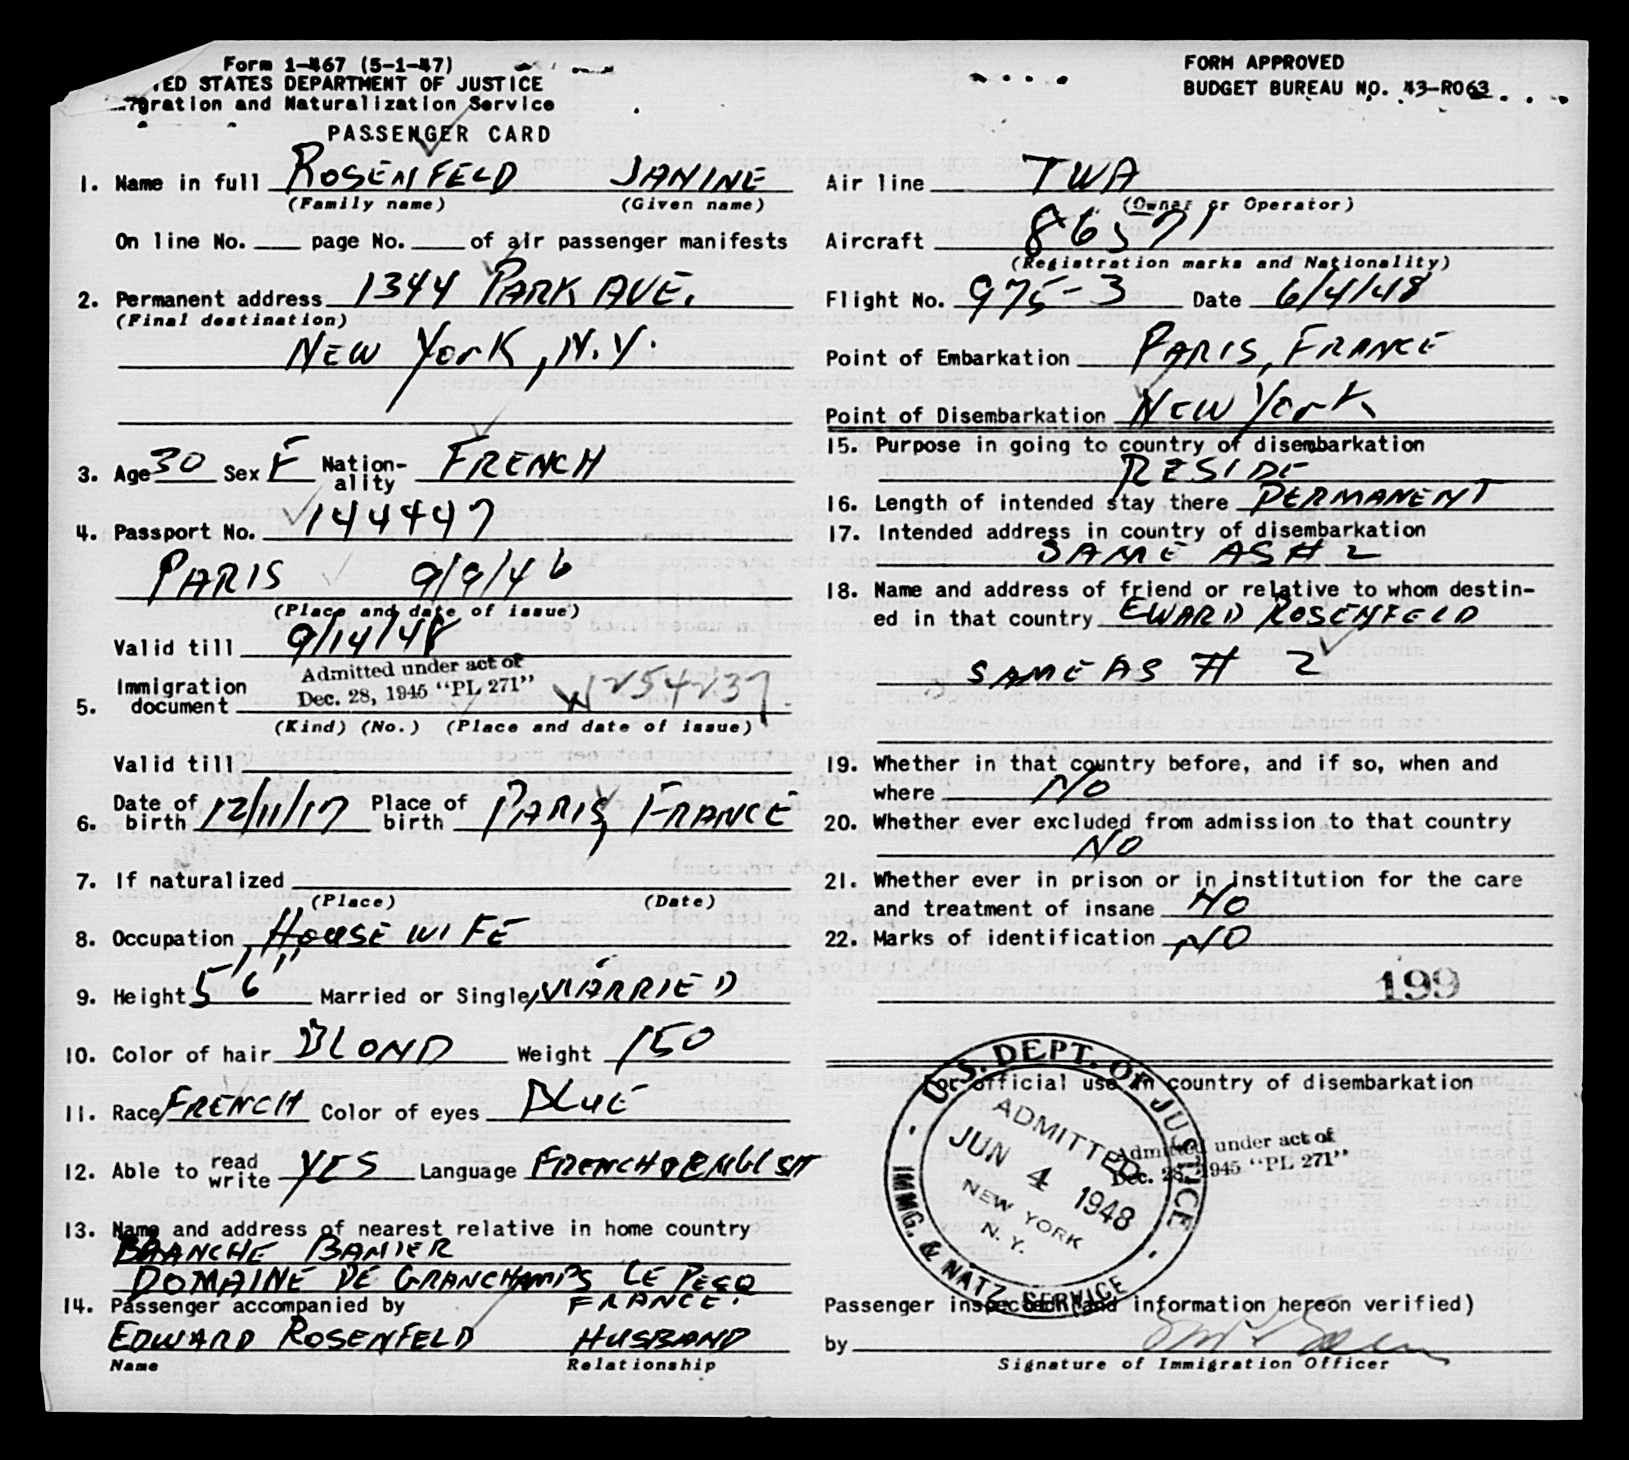 Form 1-467 (5-1-47)
TED STATES DEPARTMENT OF JUSTICE
gration and Naturalization Service
PASSENGER CARD
FORM APPROVED
BUDGET BUREAU NO. 43-R063
1. Name in full ROSENFELD JANINE
(Family name) (Given name)
On line No. page No. of air passenger manifests
2. Permanent address 1344 PARK AVE.
(Final destination)
NEW YorK, N.Y.
3. Age 30 Sex F Nation-ality FRENCH
4. Passport No. 144447
PARIS 9/9/46
(Place and date of issue)
Valid till 9/14/48
Admitted under act of
Dec. 28, 1945 "PL 271"
5. Immigration document 1254237
(Kind) (No.) (Place and date of issue)
Valid till
6. Date of birth 12/11/17 Place of birth PARIS, FRANCE
7. If naturalized
(Place) (Date)
8. Occupation HOUSE WIFE
9. Height 5'6" Married or Single MARRIED
10. Color of hair BLOND Weight 150
11. Race FRENCH Color of eyes BLUE
12. Able to read write YES Language FRENCH & ENGLISH
13. Name and address of nearest relative in home country
BLANCHE BAMIER
DOMAINE DE GRANCHAMPS LE PECQ
FRANCE.
14. Passenger accompanied by
EDWARD ROSENFELD HUSBAND
Name Relationship
Air line TWA
(Owner or Operator)
Aircraft 86571
(Registration marks and Nationality)
Flight No. 975-3 Date 6/4/48
Point of Embarkation PARIS, FRANCE
Point of Disembarkation NEW York
15. Purpose in going to country of disembarkation
RESIDE
16. Length of intended stay there PERMANENT
17. Intended address in country of disembarkation
SAME AS # 2
18. Name and address of friend or relative to whom destin-
ed in that country EWARD ROSENFELD
SAME AS # 2
19. Whether in that country before, and if so, when and
where NO
20. Whether ever excluded from admission to that country
NO
21. Whether ever in prison or in institution for the care
and treatment of insane NO
22. Marks of identification NO
199
For official use in country of disembarkation
U.S. DEPT. OF JUSTICE
ADMITTED
JUN 4 1948
NEW YORK
N. Y.
IMMG. & NATZ. SERVICE
Admitted under act of
Dec. 28, 1945 "PL 271"
Passenger inspected (and information hereon verified)
by
Signature of Immigration Officer